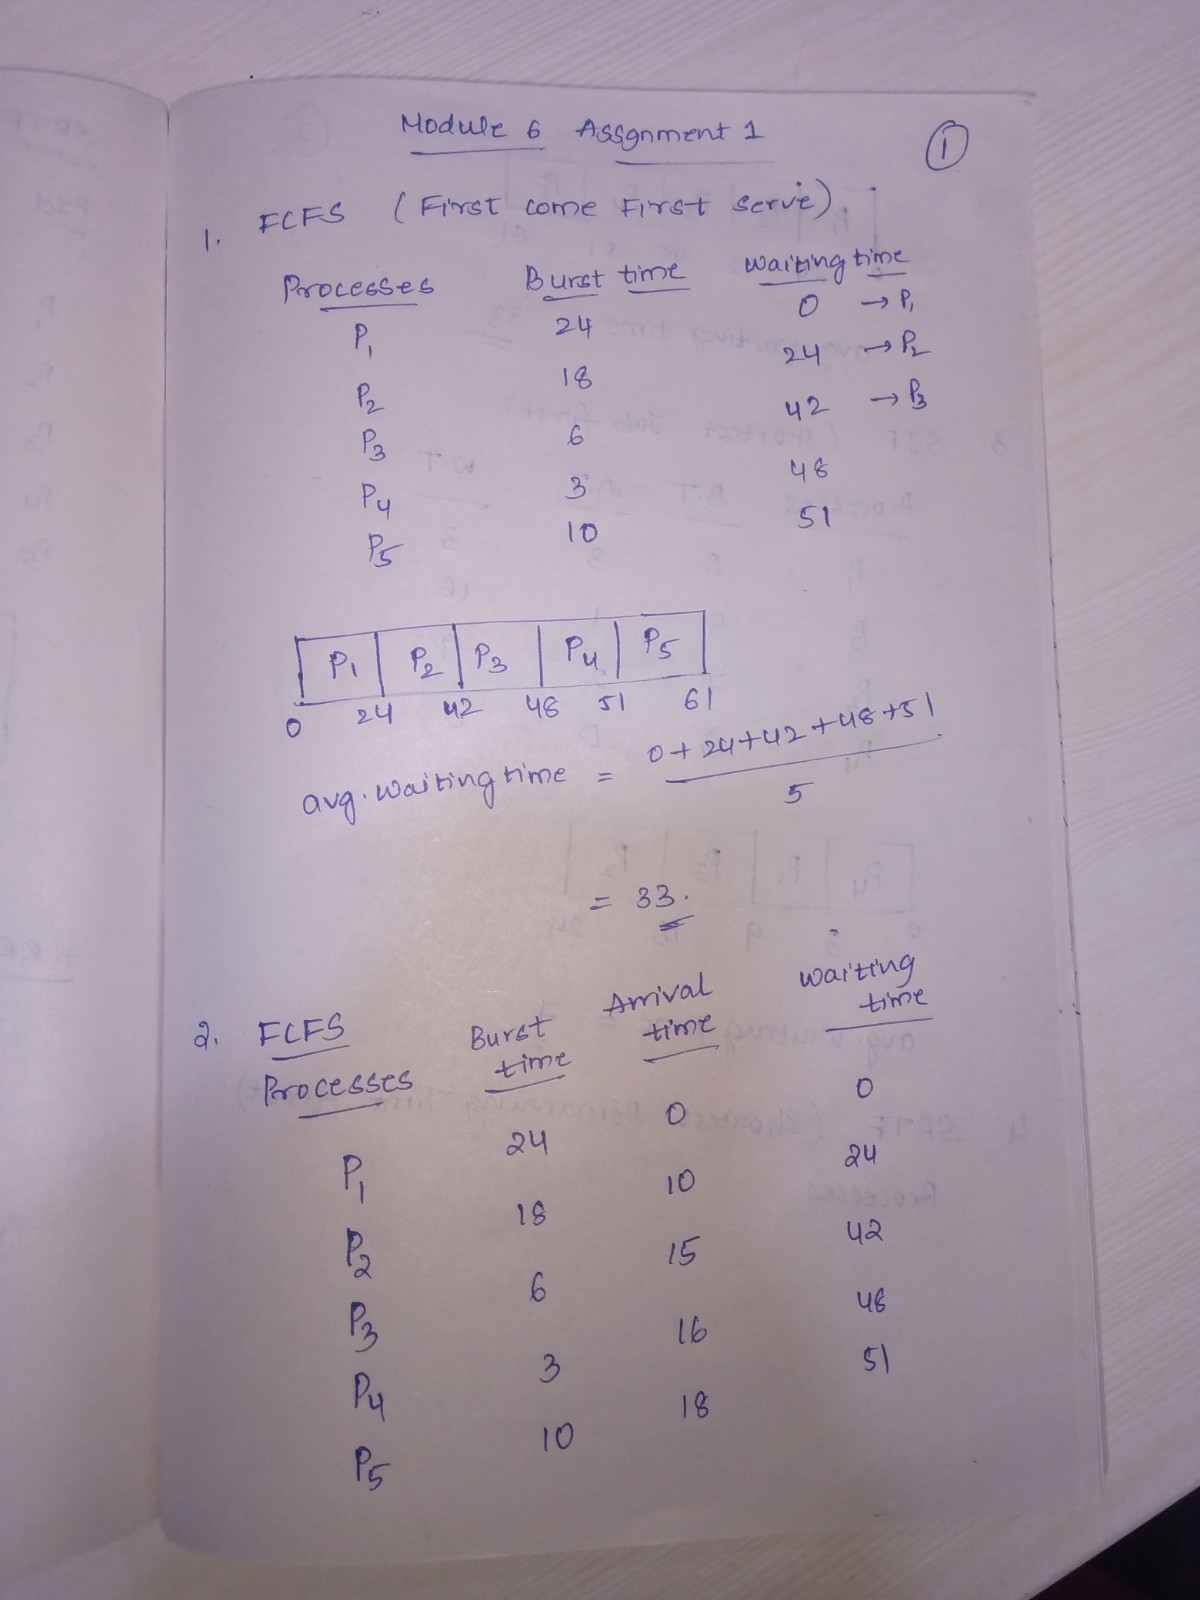 Module 6 Assgnment 1
1
1. FCFS (First come First serve)
Processes Burst time Waiting time
P1 24 0 → P1
P2 18 24 → P2
P3 6 42 → P3
P4 3 48
P5 10 51
P1 P2 P3 P4 P5
0 24 42 48 51 61
avg. waiting time = 0 + 24 + 42 + 48 + 51
5
= 33.
2. FCFS
Processes Burst time Arrival time Waiting time
P1 24 0 0
P2 18 10 24
P3 6 15 42
P4 3 16 48
P5 10 18 51